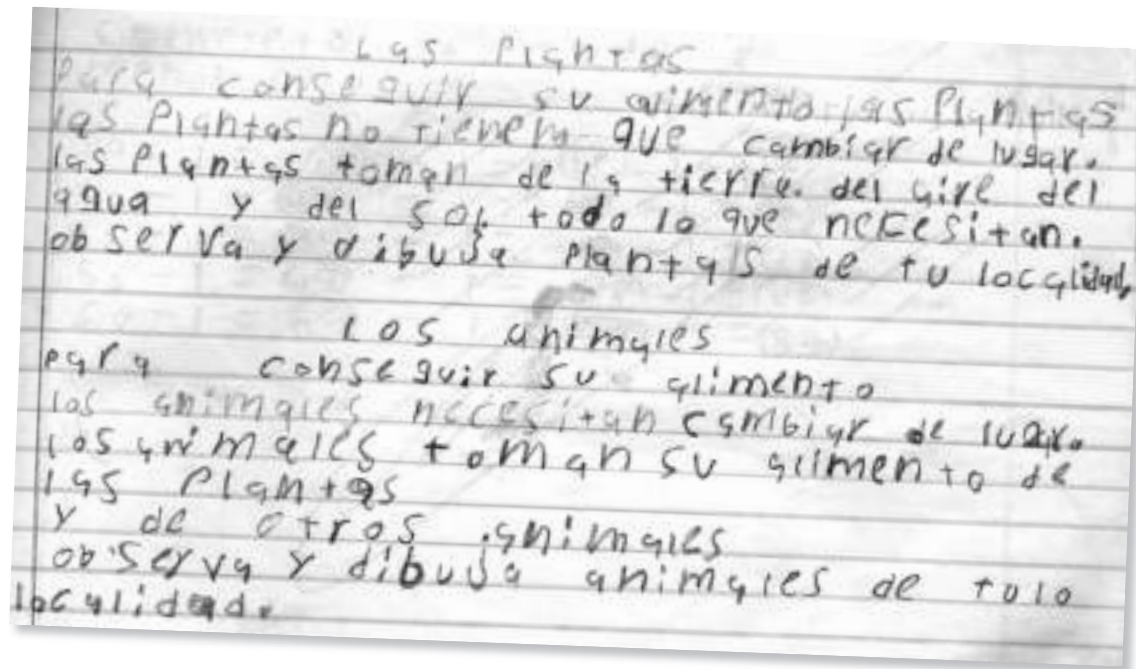 Las Plantas
Para conseguir su alimento las Plantas
las Plantas no tienem que cambiar de lugar.
las Plantas toman de la tierre. del aire del
agua y del sol todo lo que necesitan.
observa y dibuja plantas de tu localidad,
Los animales
para conseguir su alimento
los animales necesitan cambiar de lugar.
los animales toman su alimento de
las Plantas
y de otros animales
observa y dibuja animales de tulo
localidad.